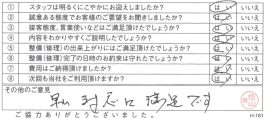 ① スタッフは明るくにこやかにお迎えしましたか? はい いいえ
② 誠意ある態度でお客様のご要望をお聞きしましたか? はい いいえ
③ 接客態度、言葉使いなどはご満足頂けたでしょうか? はい いいえ
④ 内容をわかりやすくご説明したでしょうか? はい いいえ
⑤ 整備(修理)の出来上がりにはご満足頂けたでしょうか? はい いいえ
⑥ 整備(修理)完了の日時のお約束は守れたでしょうか? はい いいえ
⑦ 費用はご納得頂けましたか? はい いいえ
⑧ 次回も当社をご利用頂けますか? はい いいえ
その他のご意見
対応 満足です
ご協力ありがとうございました。 H-181